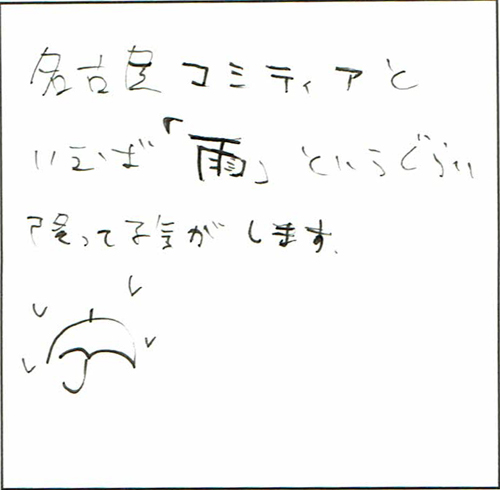 名古屋コミティアと
いえば「雨」というぐらい
降ってる気がします。